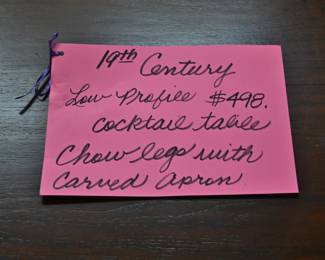 19th Century
Low Profile $498.
cocktail table
Chow legs with
Carved Apron